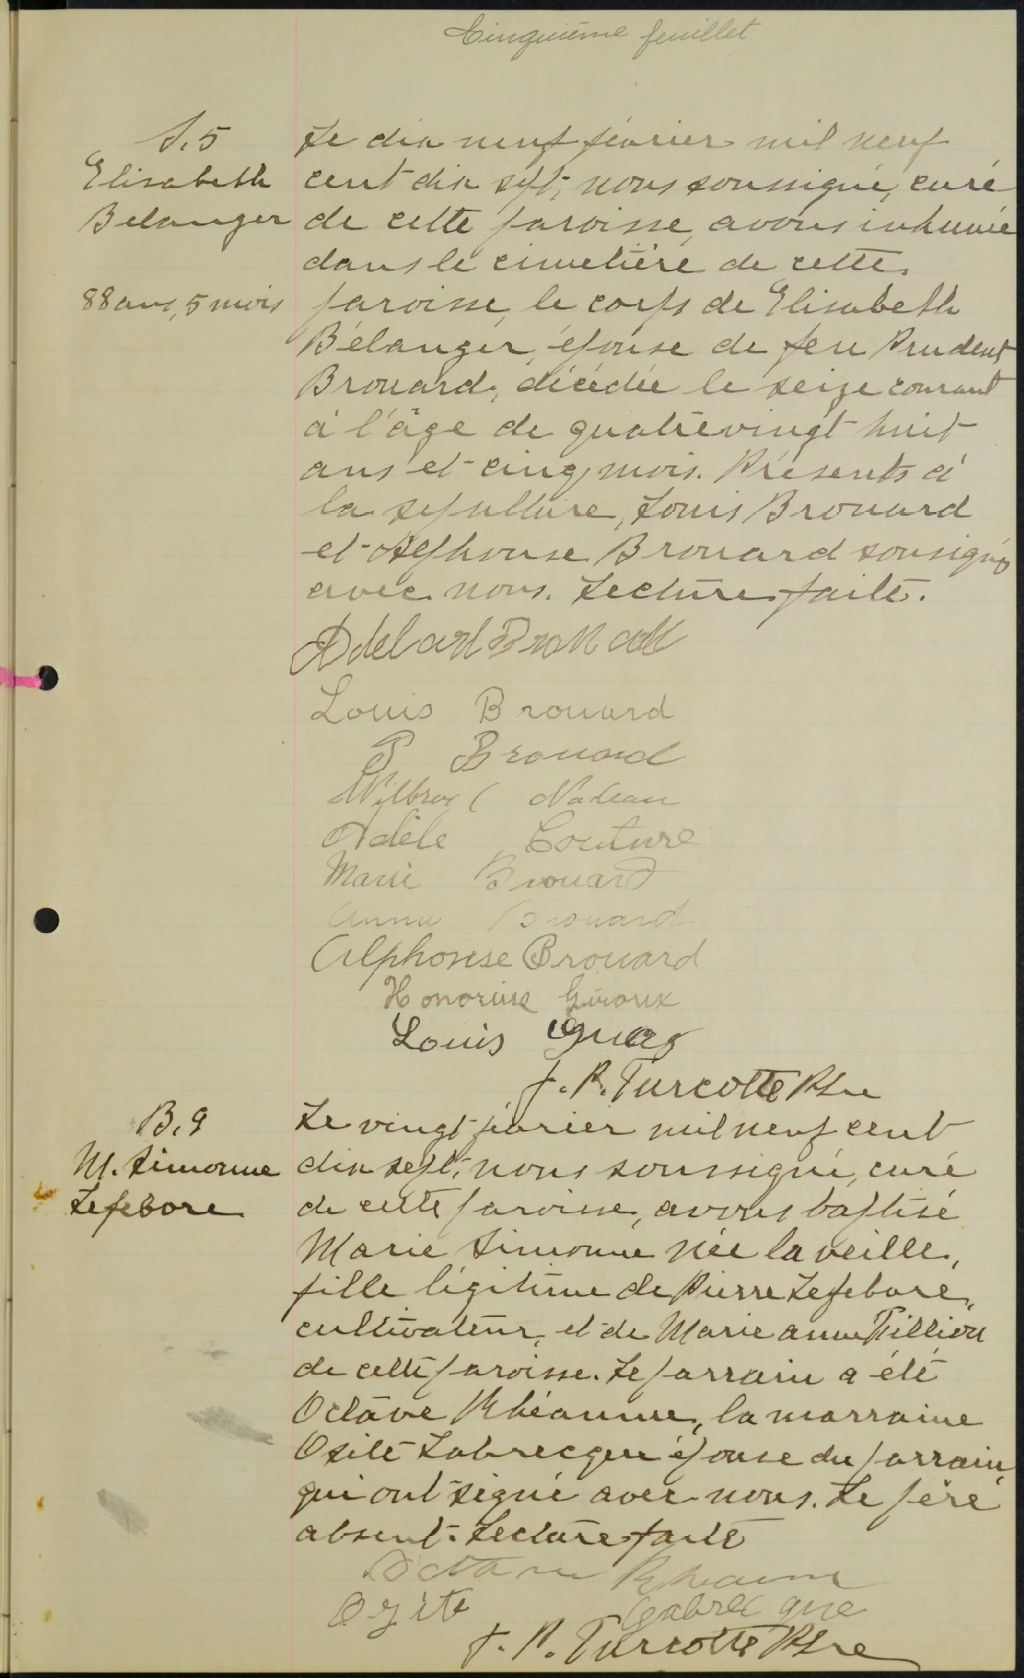 Cinquième feuillet
S. 5
Elisabeth
Belanger
88 ans, 5 mois
Le dix neuf février mil neuf
cent dix sept, nous soussigné, curé
de cette paroisse, avons inhumé
dans le cimetière de cette
paroisse, le corps de Elisabeth
Bélanger, épouse de feu Prudent
Brouard, décédée le seize courant
à l'âge de quatre vingt huit
ans et cinq mois. Présents à
la sépulture, Louis Brouard
et Alphonse Brouard sousignés
avec nous. Lecture faite.
Adelard Brouard
Louis Brouard
P Brouard
Wilbrod Nadeau
Adèle Couture
Marie Brouard
Anna Brouard
Alphonse Brouard
Honorius Giroux
Louis Guay
J. P. Turcotte Ptre
B. 9
M. Simonne
Lefebvre
Le vingt février mil neuf cent
dix sept, nous soussigné, curé
de cette paroisse, avons baptisé
Marie Simonne née la veille,
fille légitime de Pierre Lefebvre,
cultivateur, et de Marie anne Fillion
de cette paroisse. Le parrain a été
Octave Rhéaume, la marraine
Osite Labrecque épouse du parrain
qui ont signé avec nous. Le père
absent. Lecture faite
Octave Rheaume
Ozite Labrecque
J. P. Turcotte Ptre